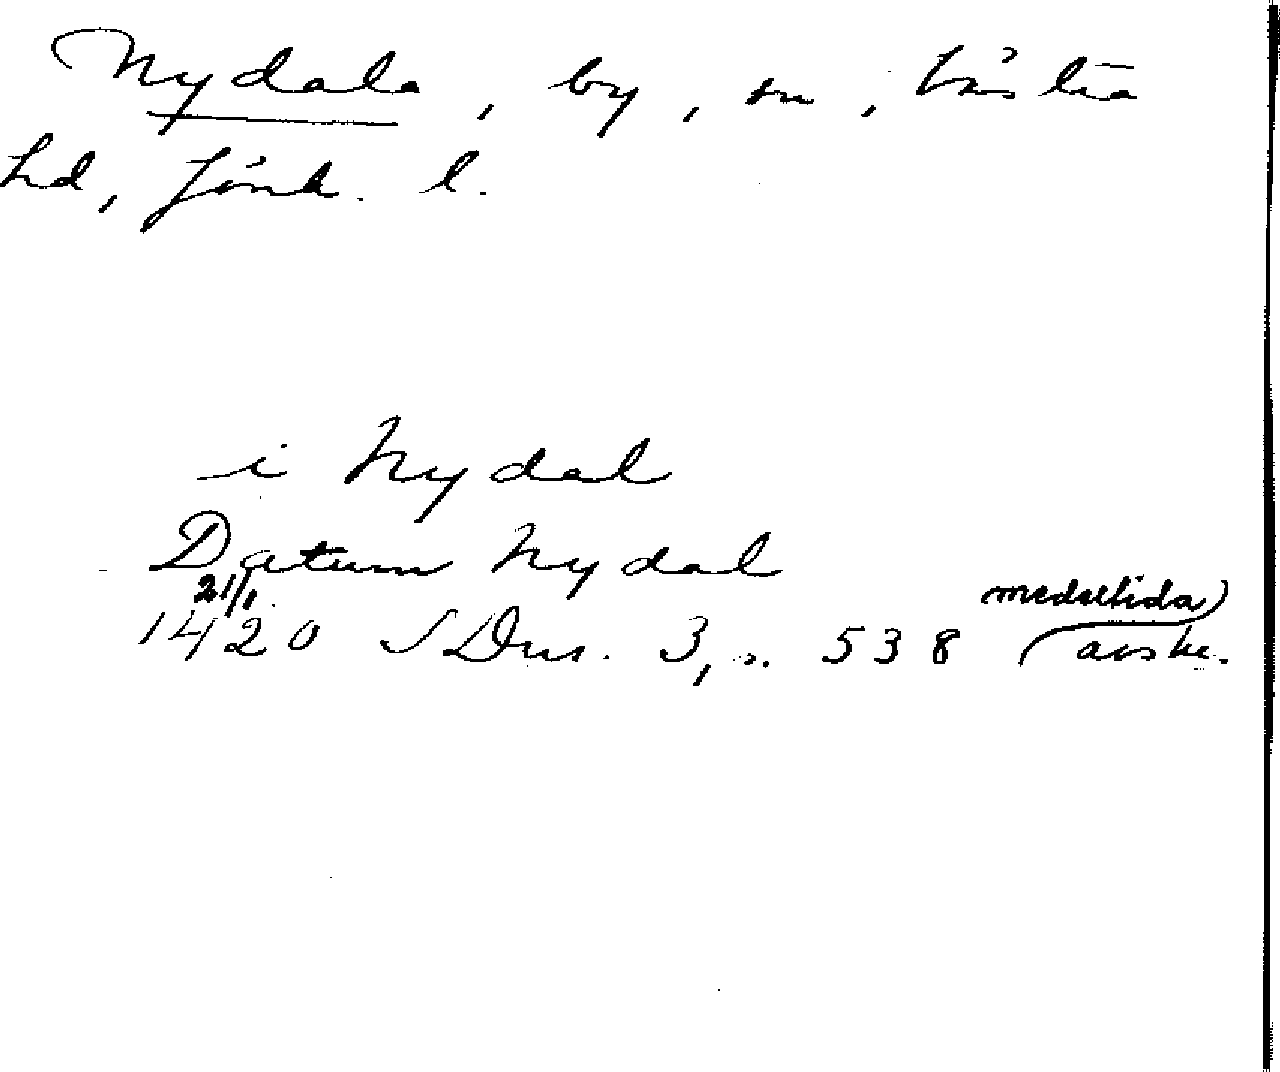 Nydala, by, sn, Västra
hd, Jönk. l.
i Nydal
Datum Nydal
21/1
1420 SDns. 3, s. 538 (medeltida)
avskr.